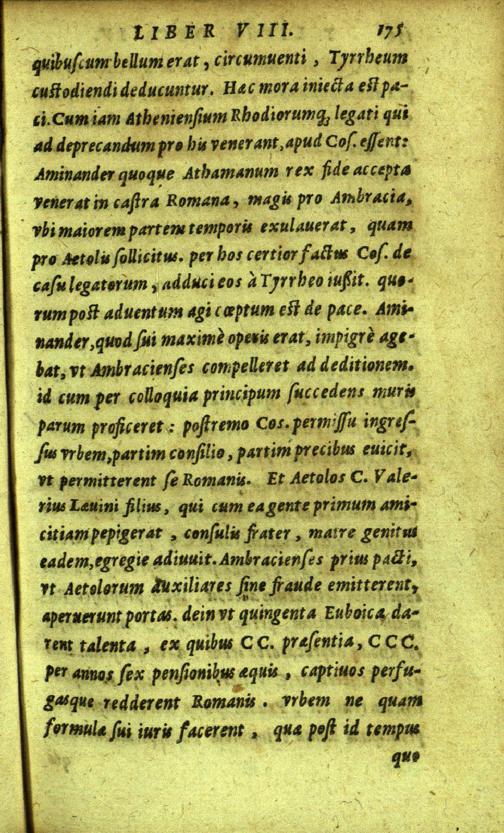 LIBER VIII. 175
quibuscum bellum erat, circumuenti, Tyrrheum
custodiendi deducuntur. Hæc mora iniecta est pa-
ci. Cum iam Atheniensium Rhodiorumq; legati qui
ad deprecandum pro his venerant, apud Cos. essent:
Aminander quoque Athamanum rex fide accepta
venerat in castra Romana, magis pro Ambracia,
vbi maiorem partem temporis exulauerat, quam
pro Aetolis sollicitus. per hos certior factus Cos. de
casu legatorum, adduci eos à Tyrrheo iußit. quo-
rum post aduentum agi cœptum est de pace. Ami-
nander, quod sui maximè operis erat, impigrè age-
bat, vt Ambracienses compelleret ad deditionem.
id cum per colloquia principum succedens muris
parum proficeret: postremo Cos. permissu ingres-
sus vrbem, partim consilio, partim precibus euicit,
vt permitterent se Romanis. Et Aetolos C. Vale-
rius Læuini filius, qui cum ea gente primum ami-
citiam pepigerat, consulis frater, matre genitus
eadem, egregie adiuuit. Ambracienses prius pacti,
vt Aetolorum auxiliares sine fraude emitterent,
aperuerunt portas. dein vt quingenta Euboica da-
rent talenta, ex quibus CC. præsentia, CCC.
per annos sex pensionibus æquis, captiuos perfu-
gasque redderent Romanis. vrbem ne quam
formulæ sui iuris facerent, quæ post id tempus
quo